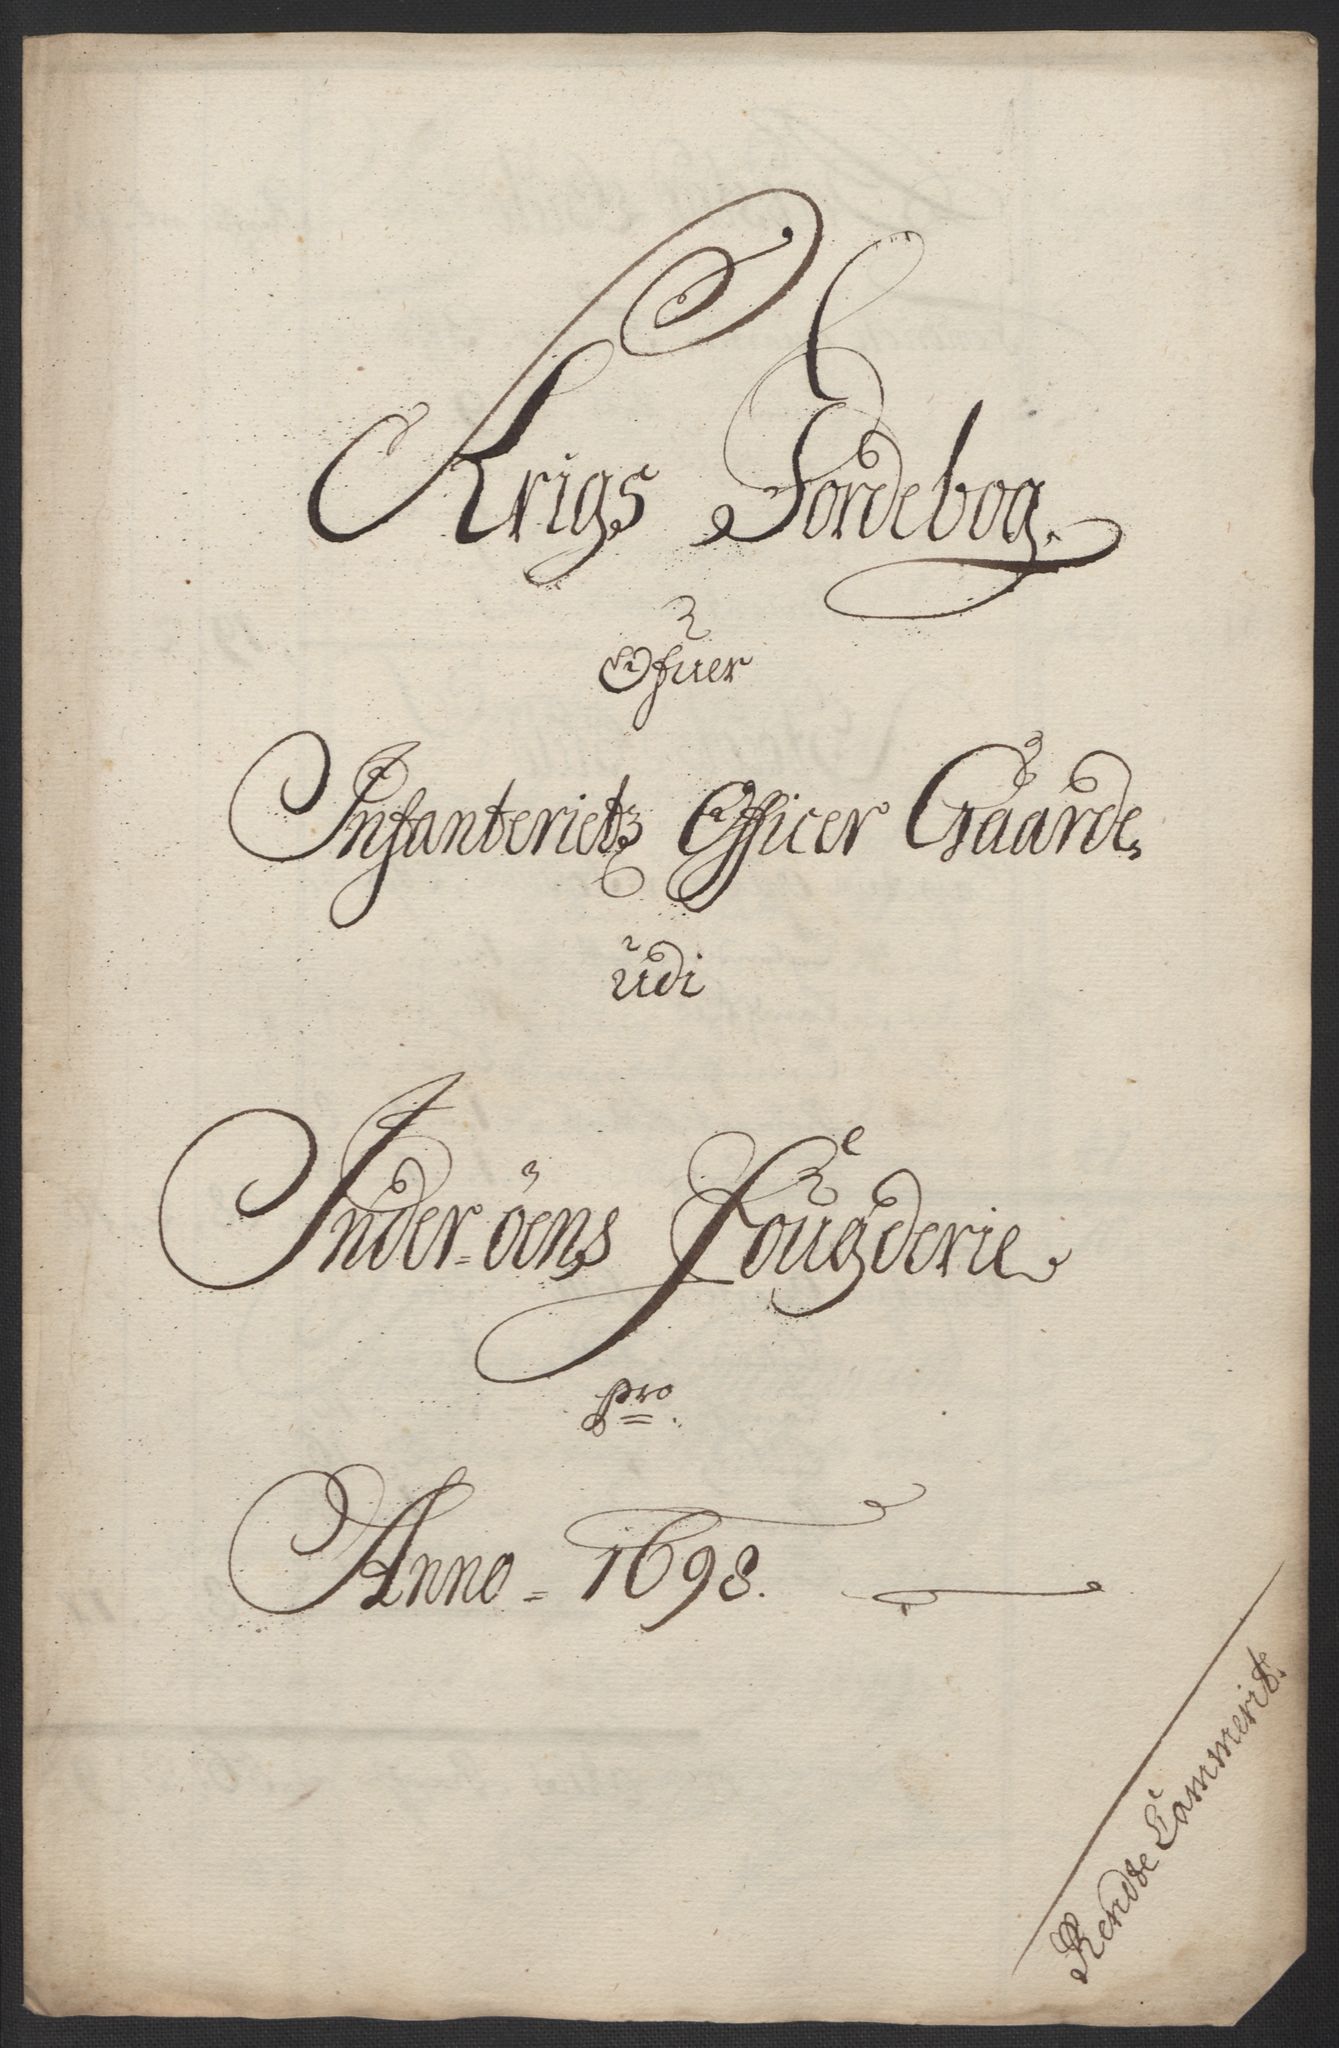 Krigs Jordebog.
Ofuer
Infanteriets Officer Gaarde,
udi
Inder-öens Fougderie
pro.
Anno - 1698.
Rendte Cammerit.